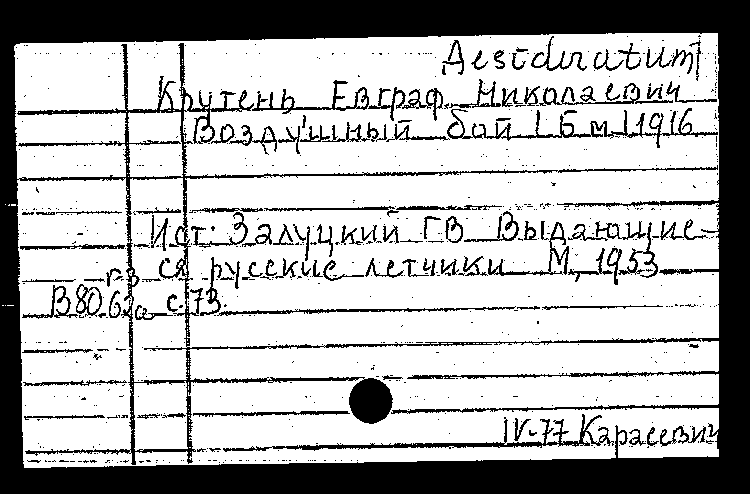 Desideratum
Крутень Евграф Николаевич
Воздушный бой | Б м | 1916
Ист: Залуцкий ГВ Выдающие-
ся русские летчики М, 1953
с. 73.
IV-77 Карасевич